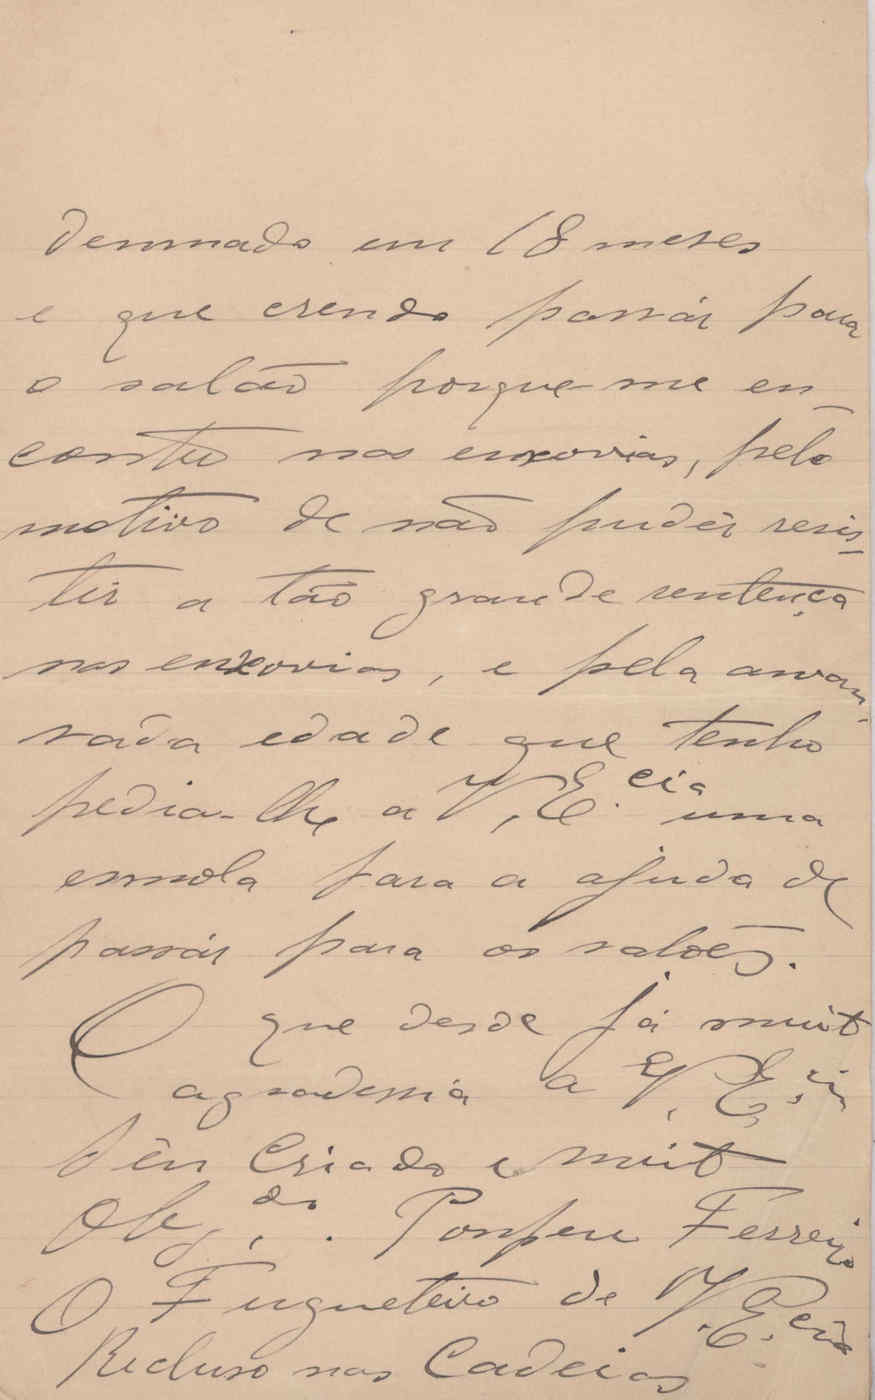 demnado em 18 meses
e que crendo passár para
o salão porque-me en-
contro nas enxovias, pelo
motivo de não pudêr resis-
tir a tão grande sentença
nas enxovias, e pela avan-
sada edade que tenho
pedia-lhe a V.E.cia uma
esmola para a ajuda de
passár para os salões.
O que desde já muito
agradessia a V.E.cia
Sêu Criado e muito
Obg.do. Pompeu Ferreira
O Fugueteiro de V.E.cia
Recluso nas Cadeias